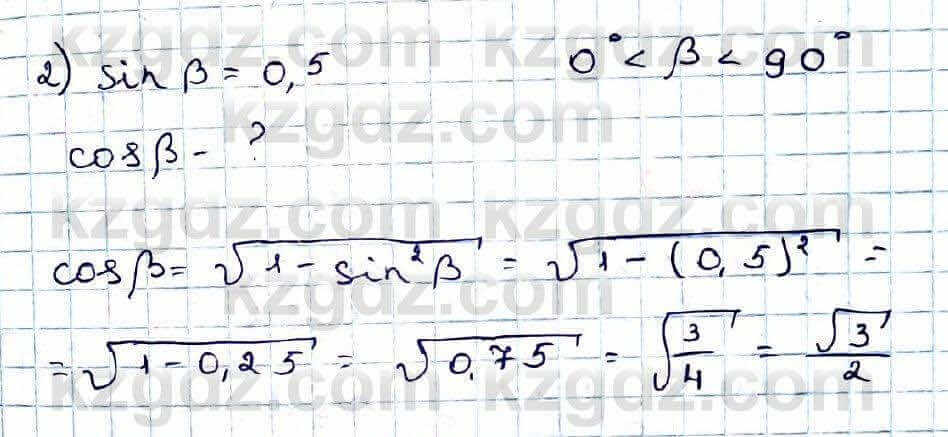 kzgdz.com kzgdz.com
2) sin β = 0,5 0° < β < 90°
kzgdz.com
cos β - ?
kzgdz.com kzgdz.com
cos β = √(1 - sin²β) = √(1 - (0,5)²) =
kzgdz.com
= √(1 - 0,25) = √0,75 = √(3/4) = √3/2
kzgdz.com kzgdz.com